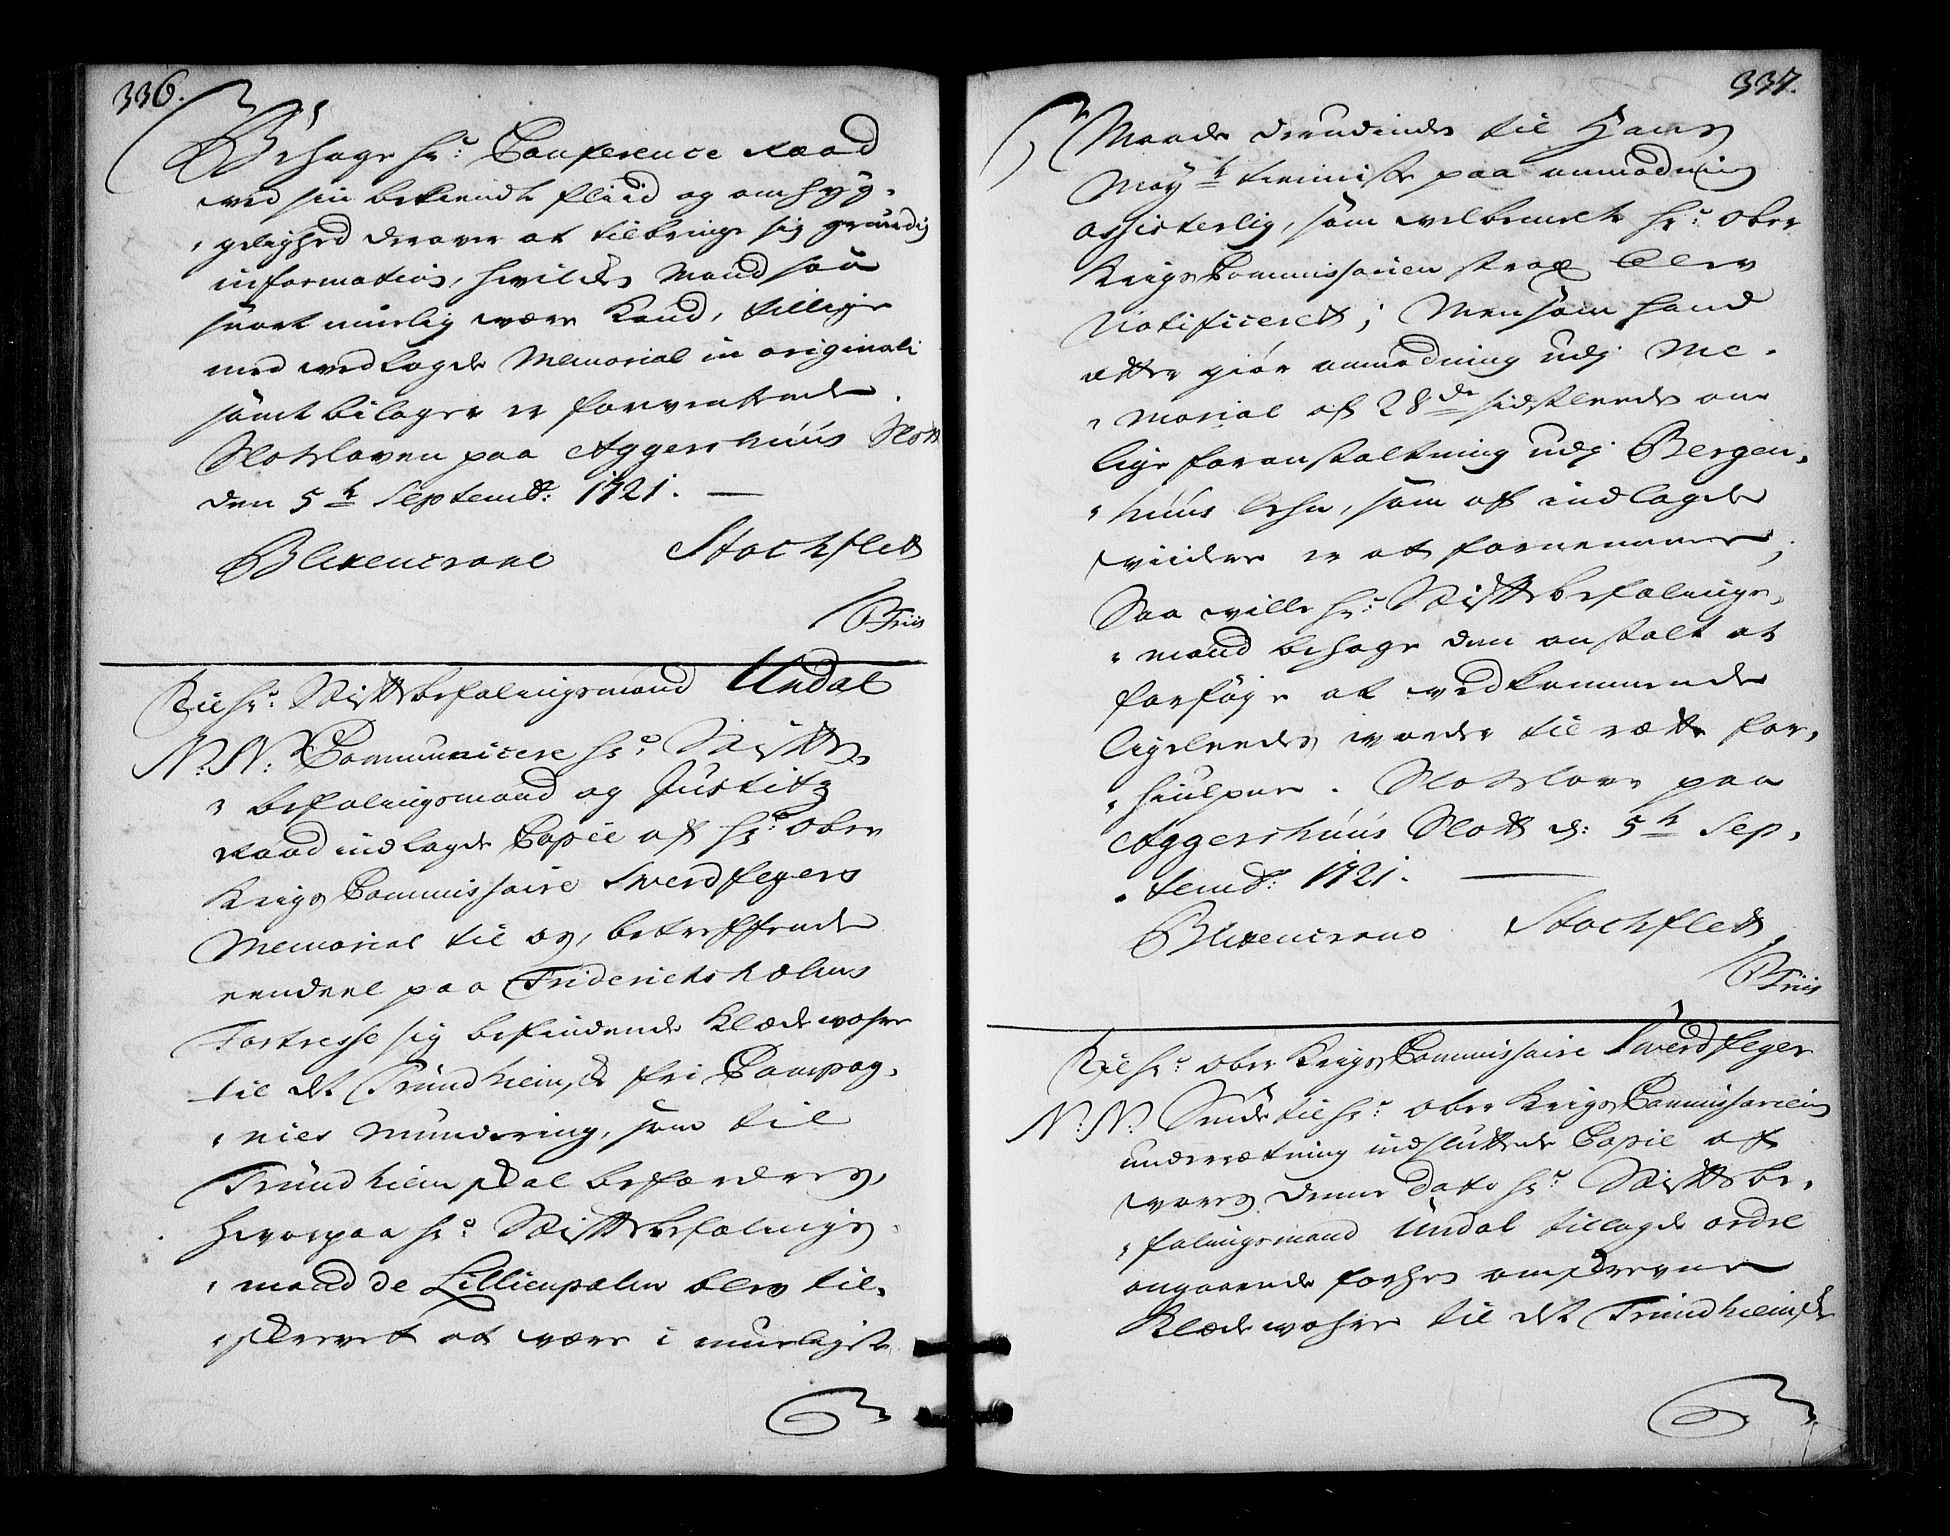 336.
Behage Hr: Conference Raad
ved sin bekiendte fliid og omhyg-
gelighed derover at tilbringe sig grundig
information, hvilcket maad saa
snart muelig være kand, tillige
med vedlagde Memorial in originali
samt bilager er forventende.
Slotsloven paa Aggershuus Slott
den 5te Septembr: 1721.
Blixencrone Stochflett
PFriis
Til Hr: Stiftsbefalingsmand Undal
N: N: Communicere Hr: Stifts-
befalingsmand og Justitz
Raad indlagde Copie af Hr: Ober
Krigs Commissaire Swerdfegers
Memorial til os, betreffende
eendeel paa Friderichsholms
Fortresse sig befindende Klædevahre
til det Trundhiemske fri Compag-
nies Mundering, som til
Trundhiem skal befordres,
hvorpaa Hr: Stiftsbefalings-
mand de Lillienpalm blev til-
skrevet at være i muligste
337.
Maade derudinde til Hans
Mayts tieniste paa anmodning
assisterlig, som velbemelte Hr: Ober
Krigs Commissarien strax blev
Notificeret; Men som hand
atter giør anmodning udj Me-
morial af 28de sidstleeden om
lige foranstaltning udj Bergen-
huus Lehn, som af indlagde
viidere er at fornemme;
Saa ville Hr: Stiftsbefalings-
mand behage den anstalt at
forføje at vedkommende
ligeleedes vorder til rætte for-
hiulpen. Slotsloven paa
Aggershuus Slott d: 5te Sep-
tembr: 1721.
Blixencrone Stochflett
PFriis
Til Hr: Ober Krigs Commissaire Swerdfeger
N: N: Sende til Hr: Ober Krigs Commissariens
underrætning indsluttende Copie af
vores denne dato Hr: Stiftsbe-
falingsmand Undal tillagde ordre
angaaende forhen omskrevne
Klædevahre til det Trundhiemske